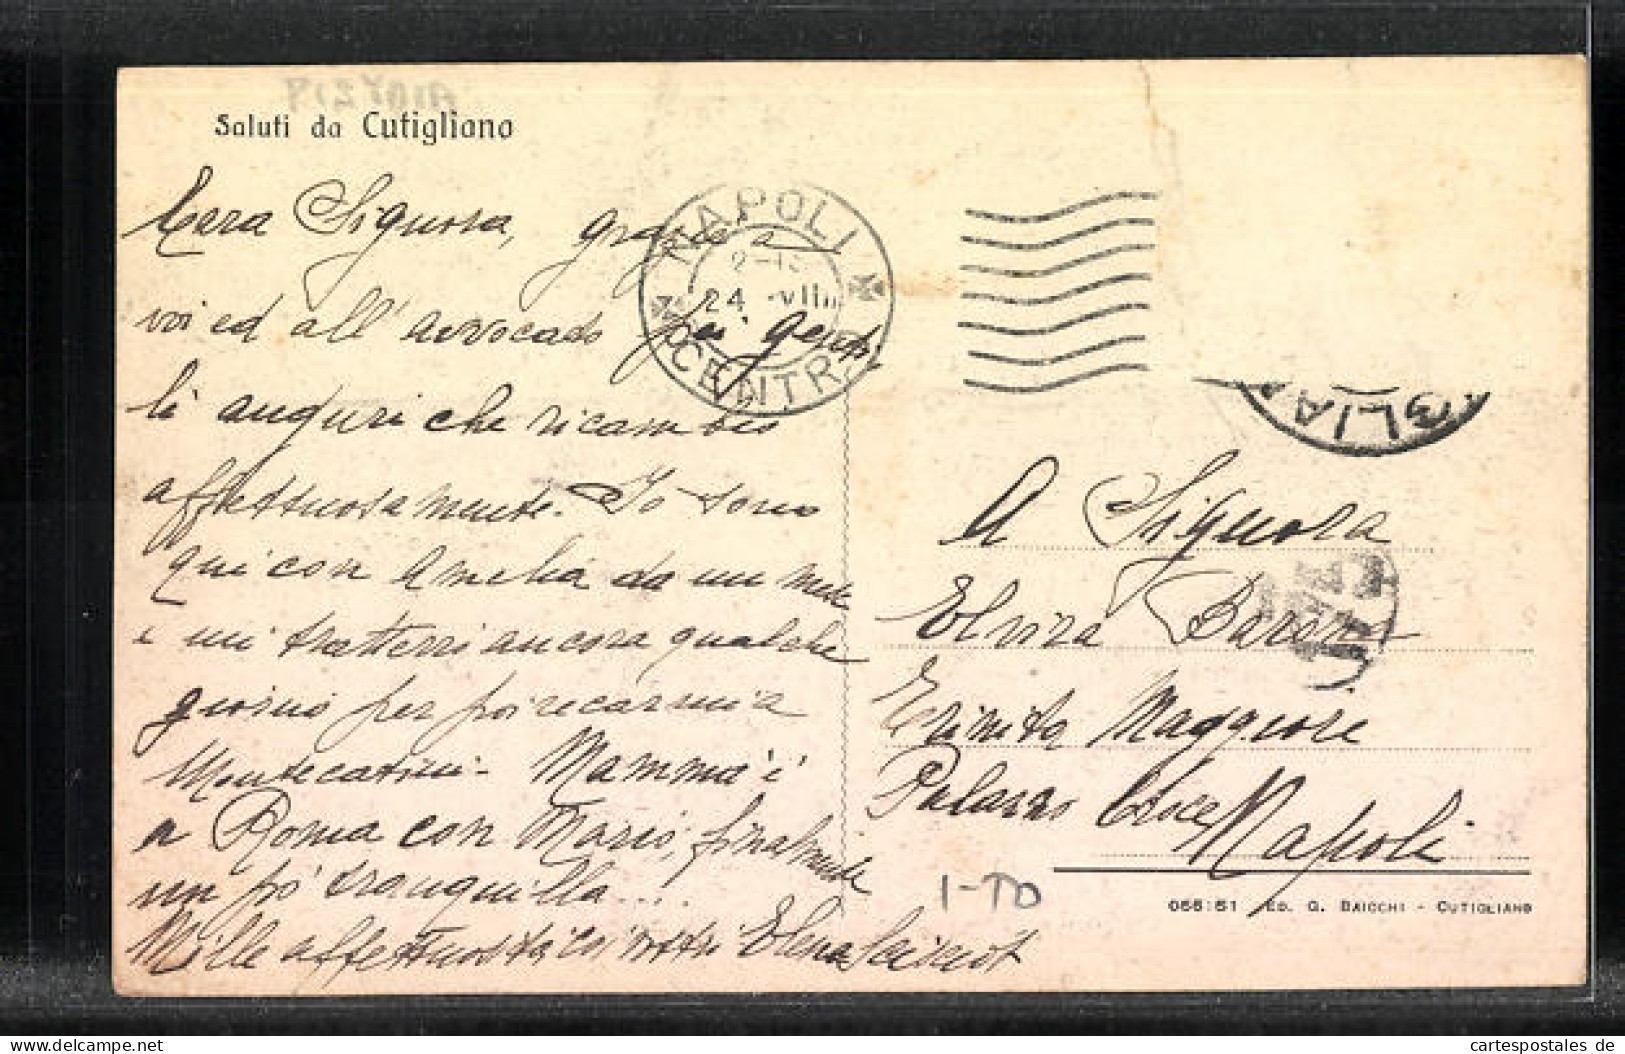 PISTOIA
Saluti da Cutigliano
Cara Signora, grazie a
voi ed all'avvocato pei genti
li auguri che ricambio
affettuosamente. Io sono
qui con Amelia da un mese
e mi tratterrò ancora qualche
giorno per poi recarmi a
Montecatini - Mamma è
a Roma con Mario, finalmente
un po' tranquilla....
Mille affettuosità ai vostri Elena
NAPOLI
24 VIII
CENTR
GLIA
A Signora
Elvira
Trinità Maggiore
Palazzo Croce
Napoli
1-TD
066151 ED. G. BAICCHI - CUTIGLIANO
delcampe.net
cartespostales de